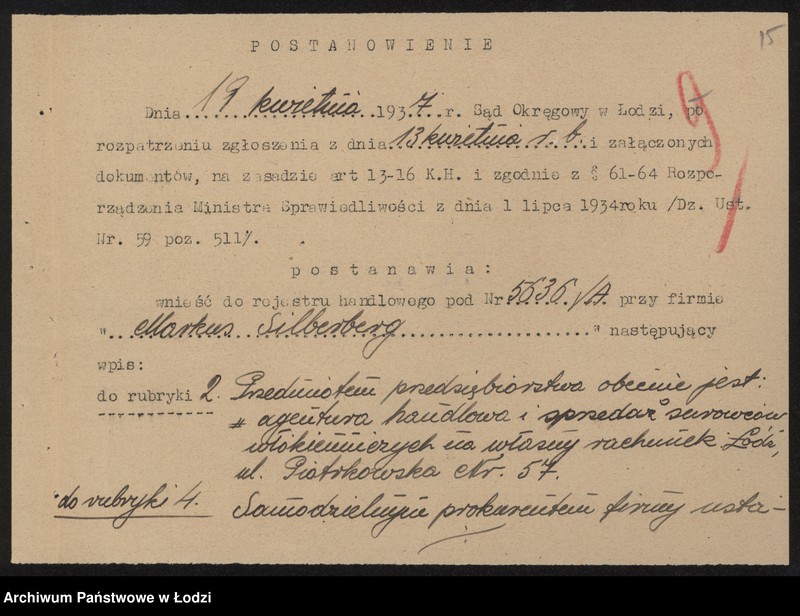 15
POSTANOWIENIE
Dnia 19 kwietnia 1937 r. Sąd Okręgowy w Łodzi, po
rozpatrzeniu zgłoszenia z dnia 13 kwietnia r. b. i załączonych
dokumentów, na zasadzie art 13-16 K.H. i zgodnie z § 61-64 Rozpo-
rządzenia Ministra Sprawiedliwości z dnia 1 lipca 1934 roku /Dz. Ust.
Nr. 59 poz. 511/.
postanawia:
wnieść do rejestru handlowego pod Nr 5636/A przy firmie
"Markus Silberberg" następujący
wpis:
do rubryki 2. Przedmiotem przedsiębiorstwa obecnie jest:
agentura handlowa i sprzedaż surowców
włókienniczych na własny rachunek Łódź,
ul. Piotrkowska Nr. 57.
do rubryki 4. Samodzielnym prokurentem firmy usta-
Archiwum Państwowe w Łodzi